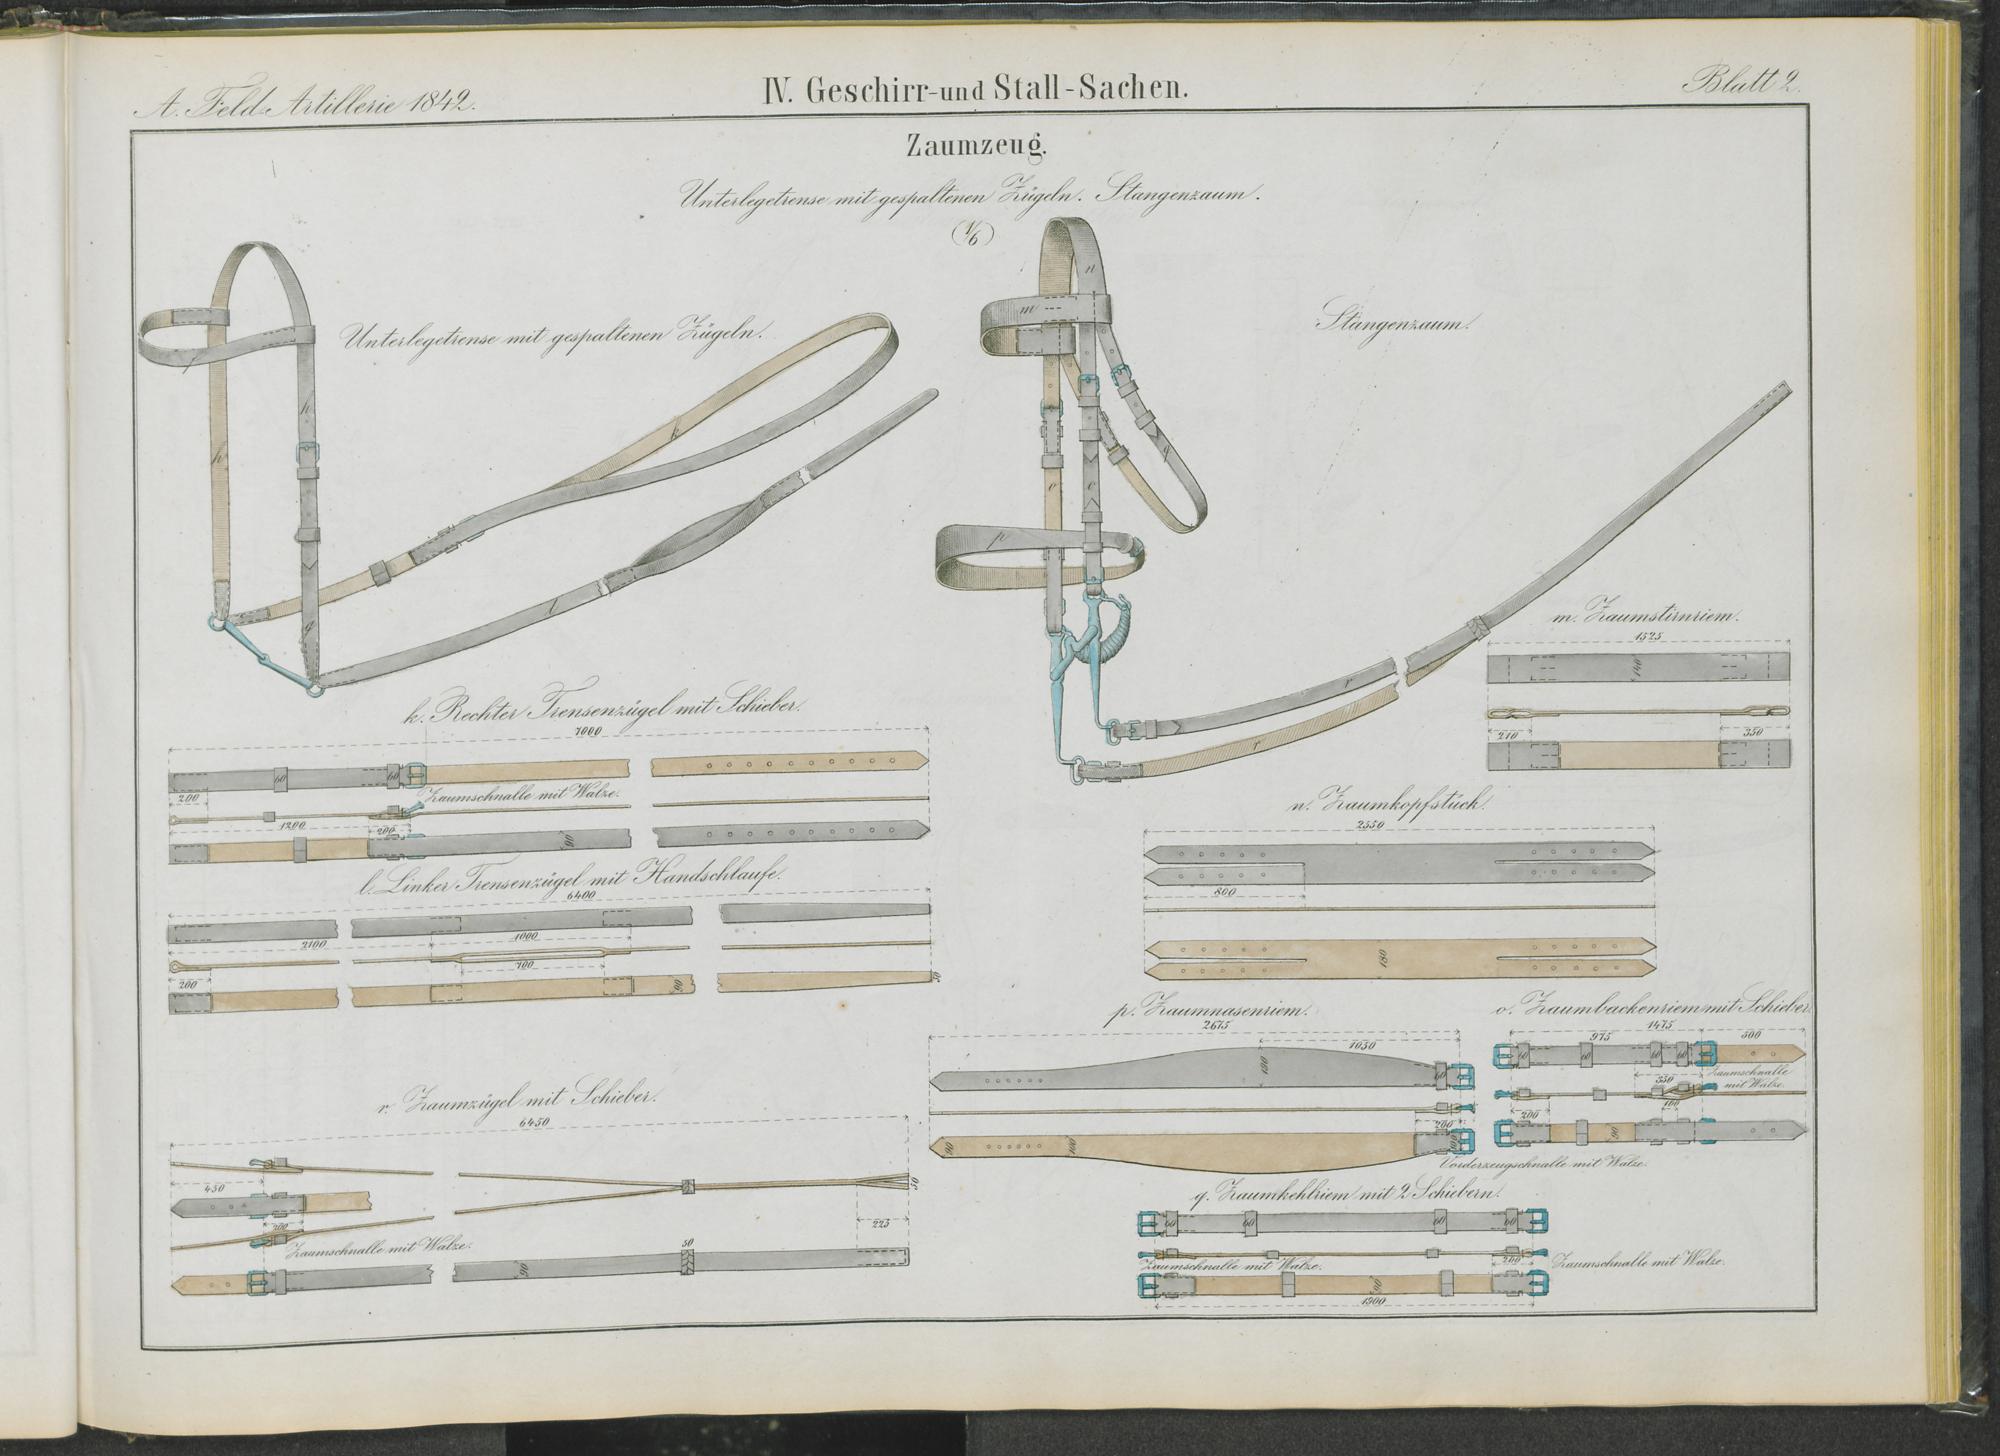 A. Feld-Artillerie 1842.
IV. Geschirr- und Stall-Sachen.
Blatt 2.
Zaumzeug.
Unterlegetrense mit gespaltenen Zügeln. Stangenzaum.
(1/6)
Unterlegetrense mit gespaltenen Zügeln.
f
h
h
g
k
l
Stangenzaum.
n
m
q
o
o
p
r
r
m. Zaumstirnriem.
1525
140
210
350
k. Rechter Trensenzügel mit Schieber.
7000
60
60
200
Zaumschnalle mit Walze.
1200
200
90
l. Linker Trensenzügel mit Handschlaufe.
6400
2100
1000
700
200
90
50
n. Zaumkopfstück.
2550
800
180
p. Zaumnasenriem.
2675
1050
180
60
200
90
100
o. Zaumbackenriem mit Schieber.
1475
975
500
60
60
60
60
Zaumschnalle
mit Walze.
550
100
200
90
Vorderzeugschnalle mit Walze.
r. Zaumzügel mit Schieber.
6450
450
50
200
225
Zaumschnalle mit Walze.
50
90
q. Zaumkehlriem mit 2 Schiebern.
60
60
60
60
200
Zaumschnalle mit Walze.
Zaumschnalle mit Walze.
90
1900